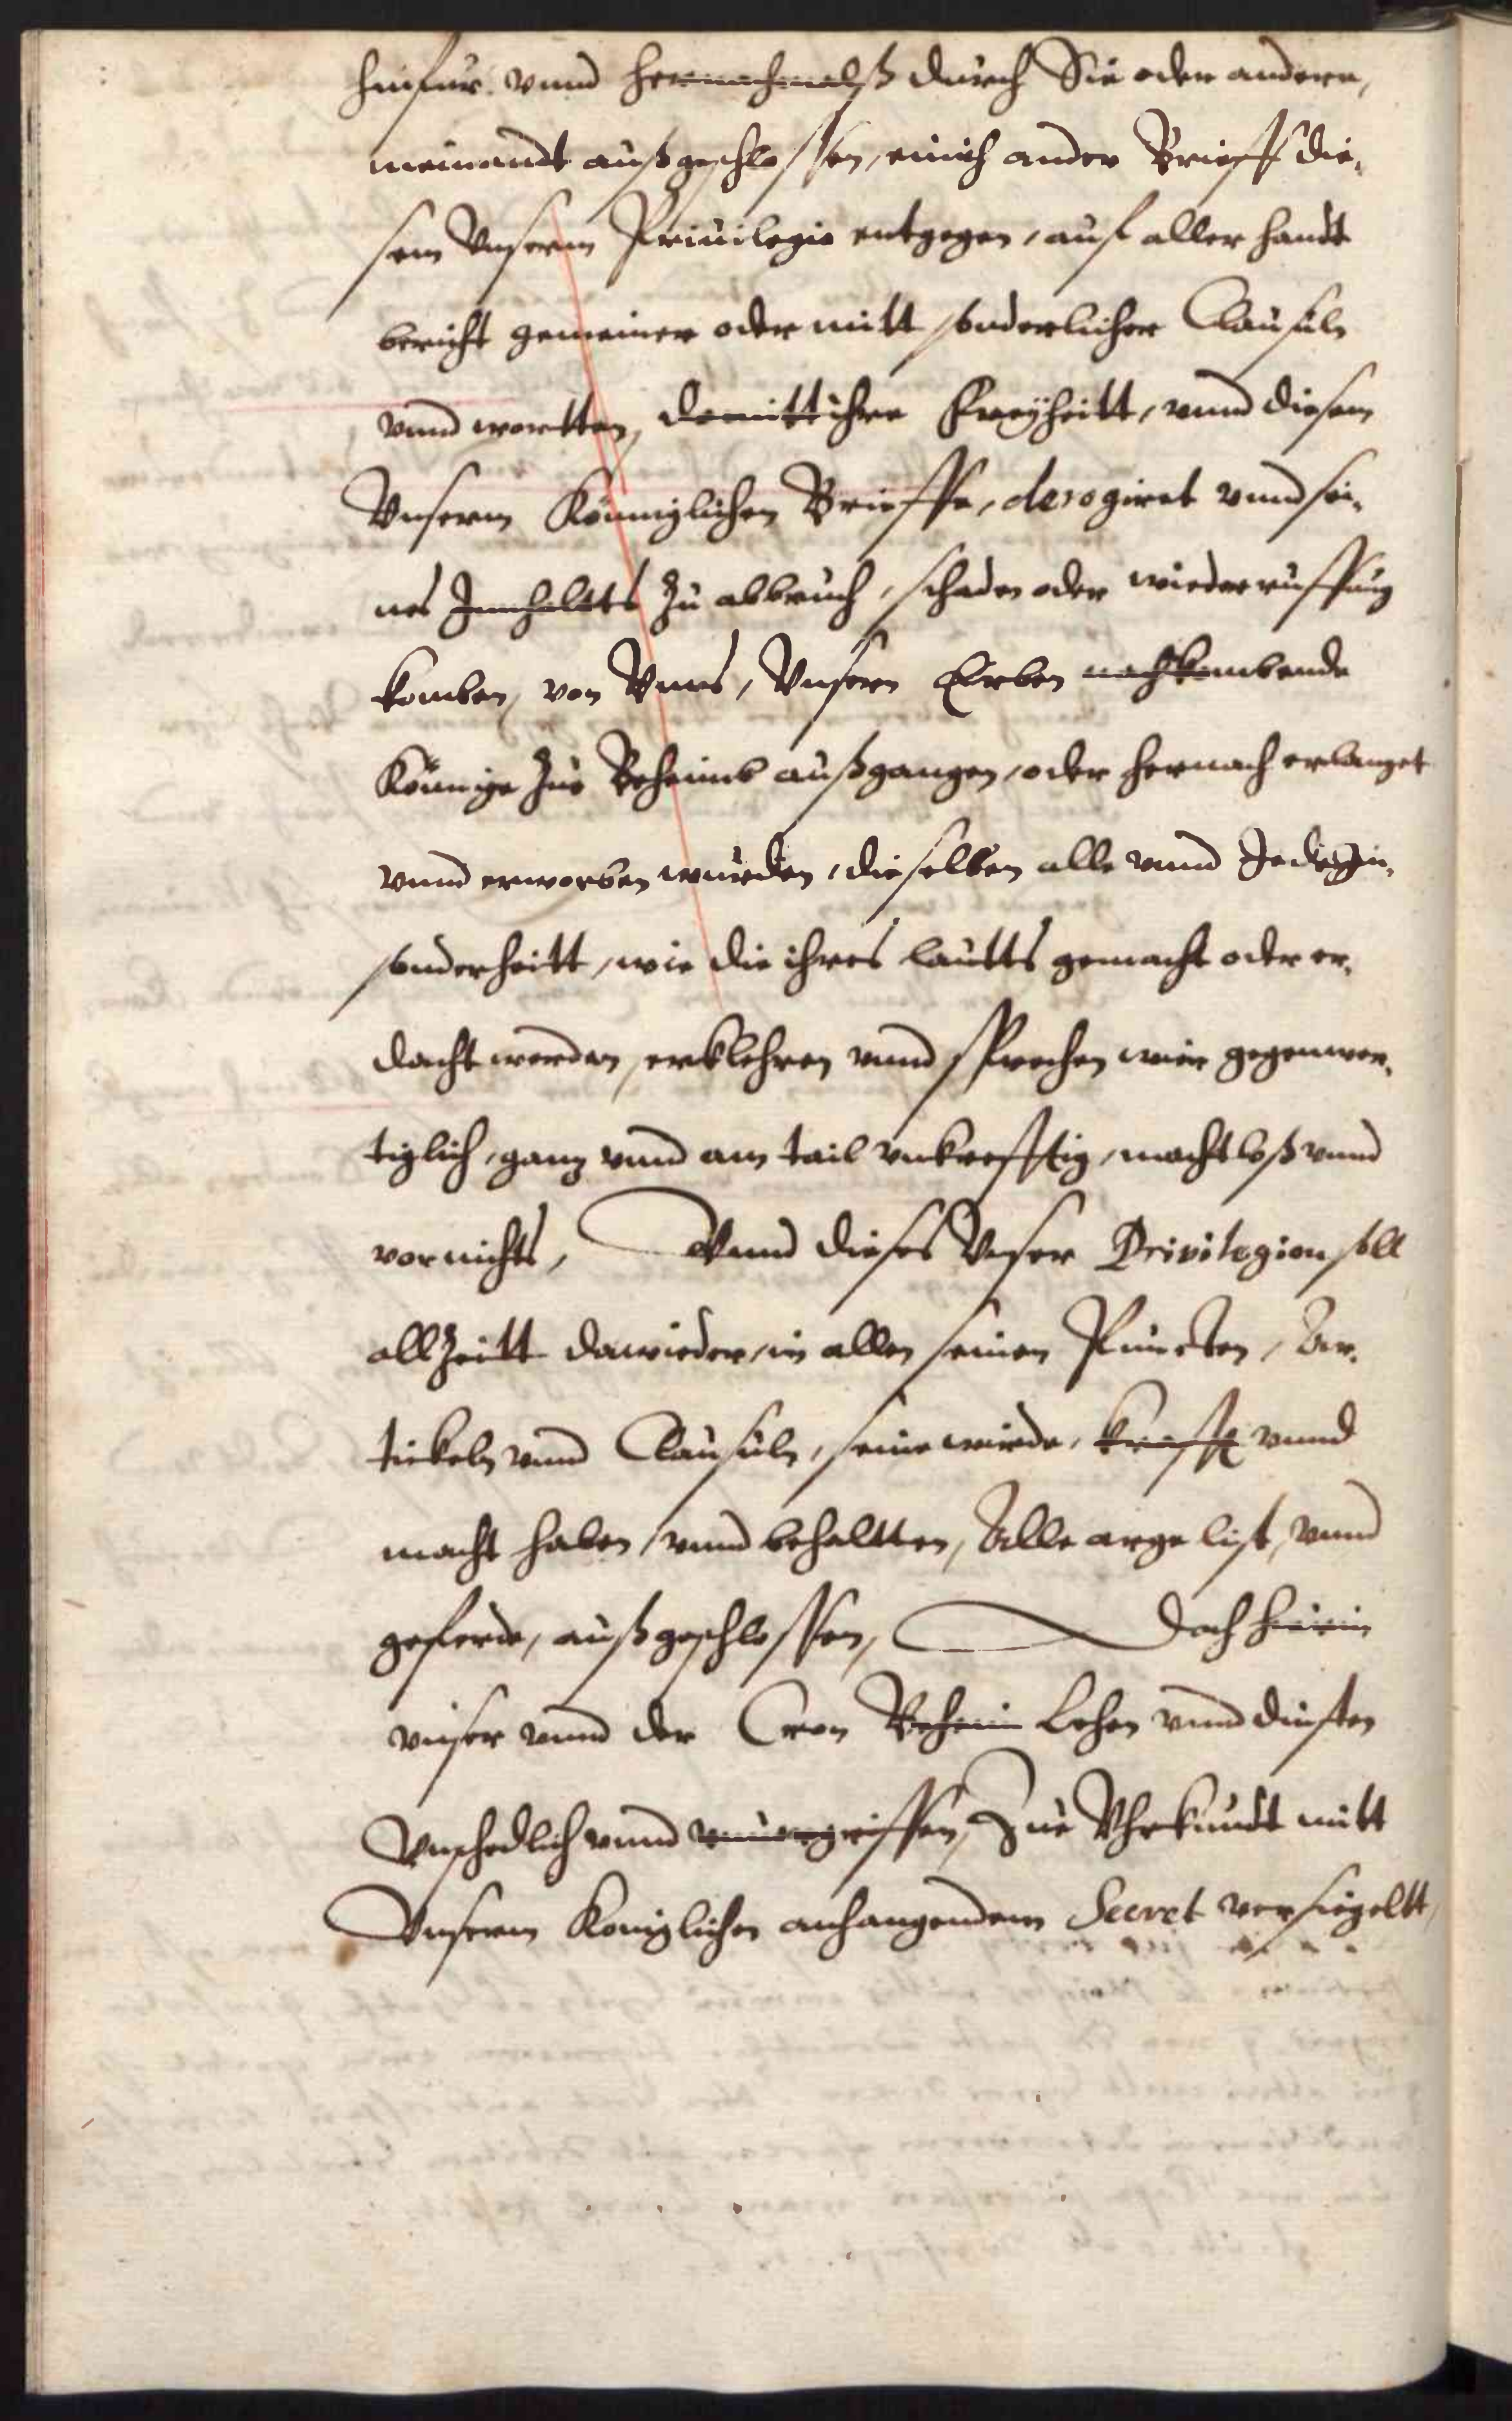 hinfur vnnd hernachmalß durch Sie oder andere,
niemandt außgeschlossen, einich ander Brieff die-
sem Vnserm Priuilegio entgegen, auf aller handt
bericht gemeiner oder mitt sonderlicher Clausuln
vnnd wortten, damitt ihre Freÿheitt, vnnd diesem
Vnserm Königlichen Brieffe, derogiret vnnd sei-
nes Innhaltts zu abbruch, schaden oder wiederruffung
komben, von Vnns, Vnsern Erben nachkombende
Könnige zue Beheimb außgangen, oder hernach erlanget
vnnd erworben wurden, dieselben alle vnnd Jede in-
sonderheitt, wie die ihres lautts gemacht oder er-
dacht werden, erklehren vnnd sprechen wier gegenwer-
tiglich, ganz vnnd am tail vnkrefftig, machtloß vnnd
vor nichts, Vnnd dieses Vnser Privilegion soll
allzeitt dawieder, in allen seinen Puncten, Ar-
tickeln vnnd Clausuln, seine wirde, krafft vnnd
macht haben, vnnd behaltten, Alle arge list, vnnd
geferde, außgeschlossen, Doch hierin
vnser vnnd der Cron Beheim Lehen vnnd dinsten
Vnschedlich vnnd vnuorgriffen, Zue Vhrkundt mitt
Vnserm Koniglichen anhangendem Secret versiegeltt,